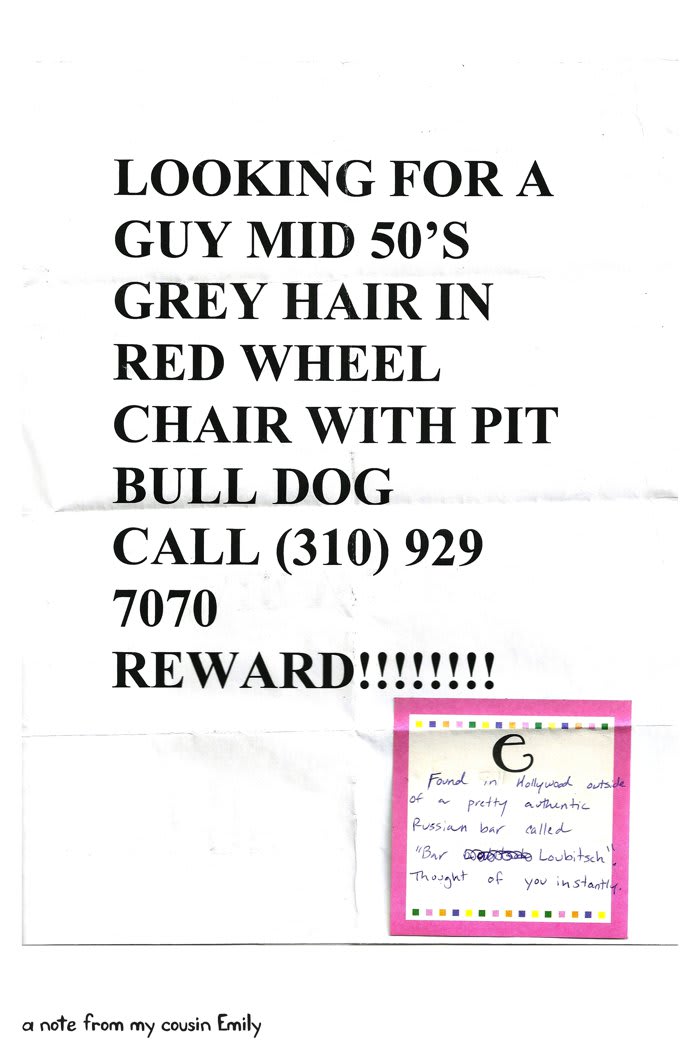 LOOKING FOR A
GUY MID 50’S
GREY HAIR IN
RED WHEEL
CHAIR WITH PIT
BULL DOG
CALL (310) 929
7070
REWARD!!!!!!!!
e
Found in Hollywood outside
of a pretty authentic
Russian bar called
"Bar Loubitsch".
Thought of you instantly.
a note from my cousin Emily